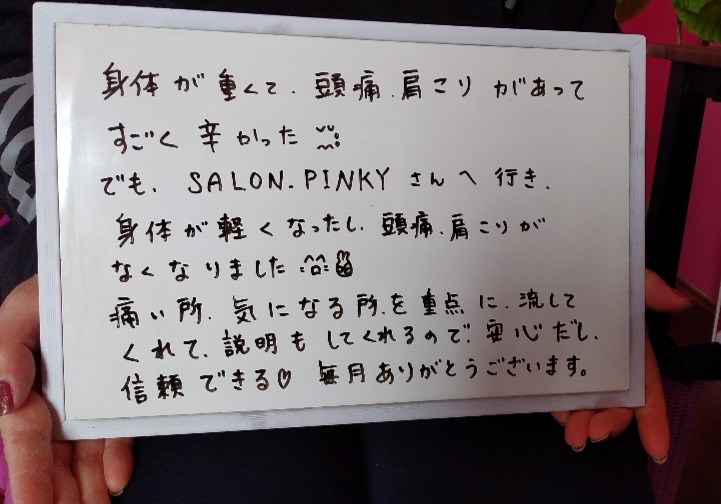 身体が重くて、頭痛、肩こりがあって
すごく辛かった
でも、SALON.PINKYさんへ行き、
身体が軽くなったし、頭痛、肩こりが
なくなりました
痛い所、気になる所、を重点に、流して
くれて、説明もしてくれるので、安心だし、
信頼できる♡ 毎月ありがとうございます。